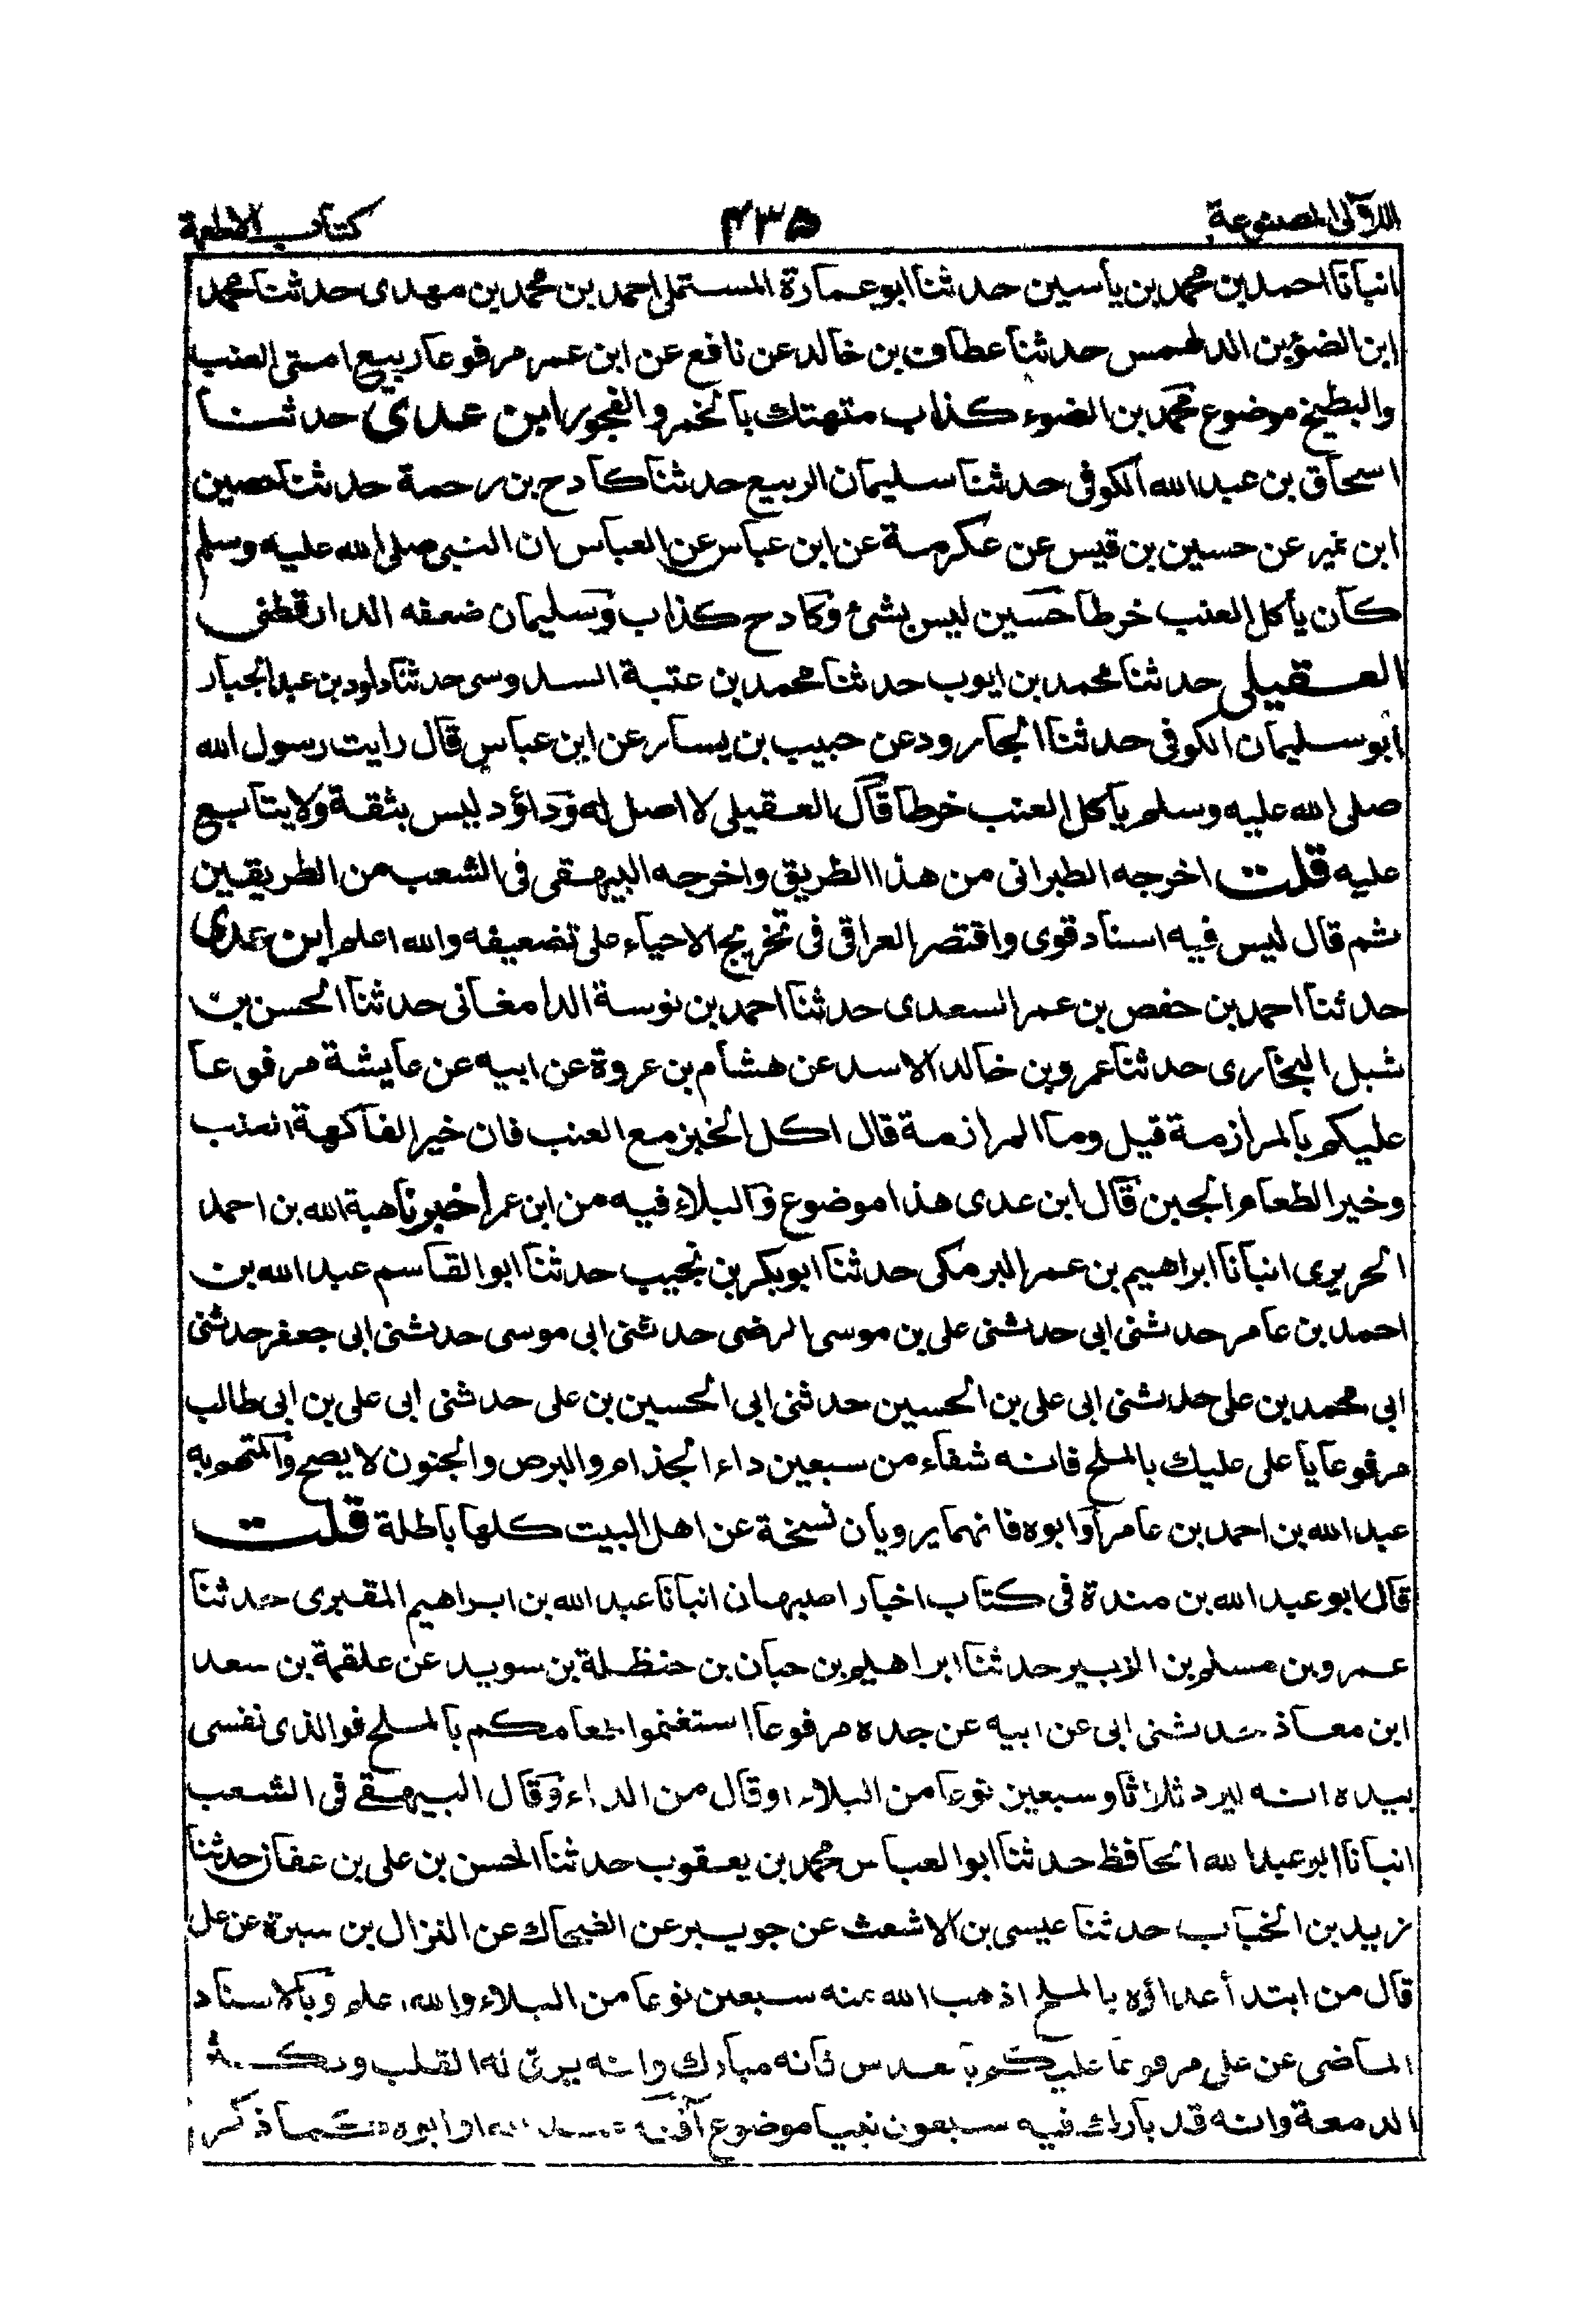 اللآلى المصنوعة ٤٣٥ كتاب الاطعمة
انبانا احمد بن محمد بن ياسين حدثنا ابو عمارة المستملى احمد بن محمد بن مهدى حدثنا محمد
ابن الضوء بن الدلهمس حدثنا عطاف بن خالد عن نافع عن ابن عمر مرفوعا ربيع امتى العنب
والبطيخ موضوع محمد بن الضوء كذاب متهتك بالخمر والفجور ابن عدى حدثنا
اسحاق بن عبد الله الكوفى حدثنا سليمان الربيع حدثنا كادح بن رحمة حدثنا حصين
ابن نمير عن حسين بن قيس عن عكرمة عن ابن عباس عن العباس ان النبى صلى الله عليه وسلم
كان يأكل العنب خرطا حسين ليس بشئ وكادح كذاب وسليمان ضعفه الدارقطنى
العقيلى حدثنا محمد بن ايوب حدثنا محمد بن عتبة السدوسى حدثنا داود بن عبد الجبار
ابو سليمان الكوفى حدثنا الجارود عن حبيب بن يسار عن ابن عباس قال رايت رسول الله
صلى الله عليه وسلم يأكل العنب خرطا قال العقيلى لا اصل له وداؤد ليس بثقة ولا يتابع
عليه قلت اخرجه الطبرانى من هذا الطريق واخرجه البيهقى فى الشعب من الطريقين
ثم قال ليس فيه اسناد قوى واقتصر العراقى فى تخريج الاحياء على تضعيفه والله اعلم ابن عدى
حدثنا احمد بن حفص بن عمر السعدى حدثنا احمد بن نوسة الدامغانى حدثنا الحسن بن
شبل البخارى حدثنا عمرو بن خالد الاسد عن هشام بن عروة عن ابيه عن عايشة مرفوعا
عليكم بالمرازمة قيل وما المرازمة قال اكل الخبز مع العنب فان خير الفاكهة العنب
وخير الطعام الجبن قال ابن عدى هذا موضوع والبلاء فيه من ابن عمر اخبرنا هبة الله بن احمد
الحريرى انبانا ابراهيم بن عمر البرمكى حدثنا ابو بكر بن نجيب حدثنا ابو القاسم عبد الله بن
احمد بن عامر حدثنى ابى حدثنى على بن موسى الرضى حدثنى ابى موسى حدثنى ابى جعفر حدثنى
ابى محمد بن على حدثنى ابى على بن الحسين حدثنى ابى الحسين بن على حدثنى ابى على بن ابى طالب
مرفوعا يا على عليك بالملح فانه شفاء من سبعين داء الجذام والبرص والجنون لا يصح والمتهم به
عبد الله بن احمد بن عامر او ابوه فانهما يرويان نسخة عن اهل البيت كلها باطلة قلت
قال ابو عبد الله بن مندة فى كتاب اخبار اصبهان انبانا عبد الله بن ابراهيم المقبرى حدثنا
عمرو بن مسلم بن الزبير حدثنا ابراهيم بن حبان بن حنظلة بن سويد عن علقمة بن سعد
ابن معاذ حدثنى ابى عن ابيه عن جده مرفوعا استغنموا طعامكم بالملح فوالذى نفسى
بيده انه ليرد ثلاثا وسبعين نوعا من البلاء او قال من الداء وقال البيهقى فى الشعب
انبانا ابو عبد الله الحافظ حدثنا ابو العباس محمد بن يعقوب حدثنا الحسن بن على بن عفان حدثنا
زيد بن الخباب حدثنا عيسى بن الاشعث عن جويبر عن الضحاك عن النزال بن سبرة عن على
قال من ابتدأ غداؤه بالملح اذهب الله عنه سبعين نوعا من البلاء والله اعلم وبالاسناد
الماضى عن على مرفوعا عليكم بالعدس فانه مبارك وانه يرق له القلب ويكثر
الدمعة وانه قد بارك فيه سبعون نبيا موضوع آفته عبد الله او ابوه كما ذكر